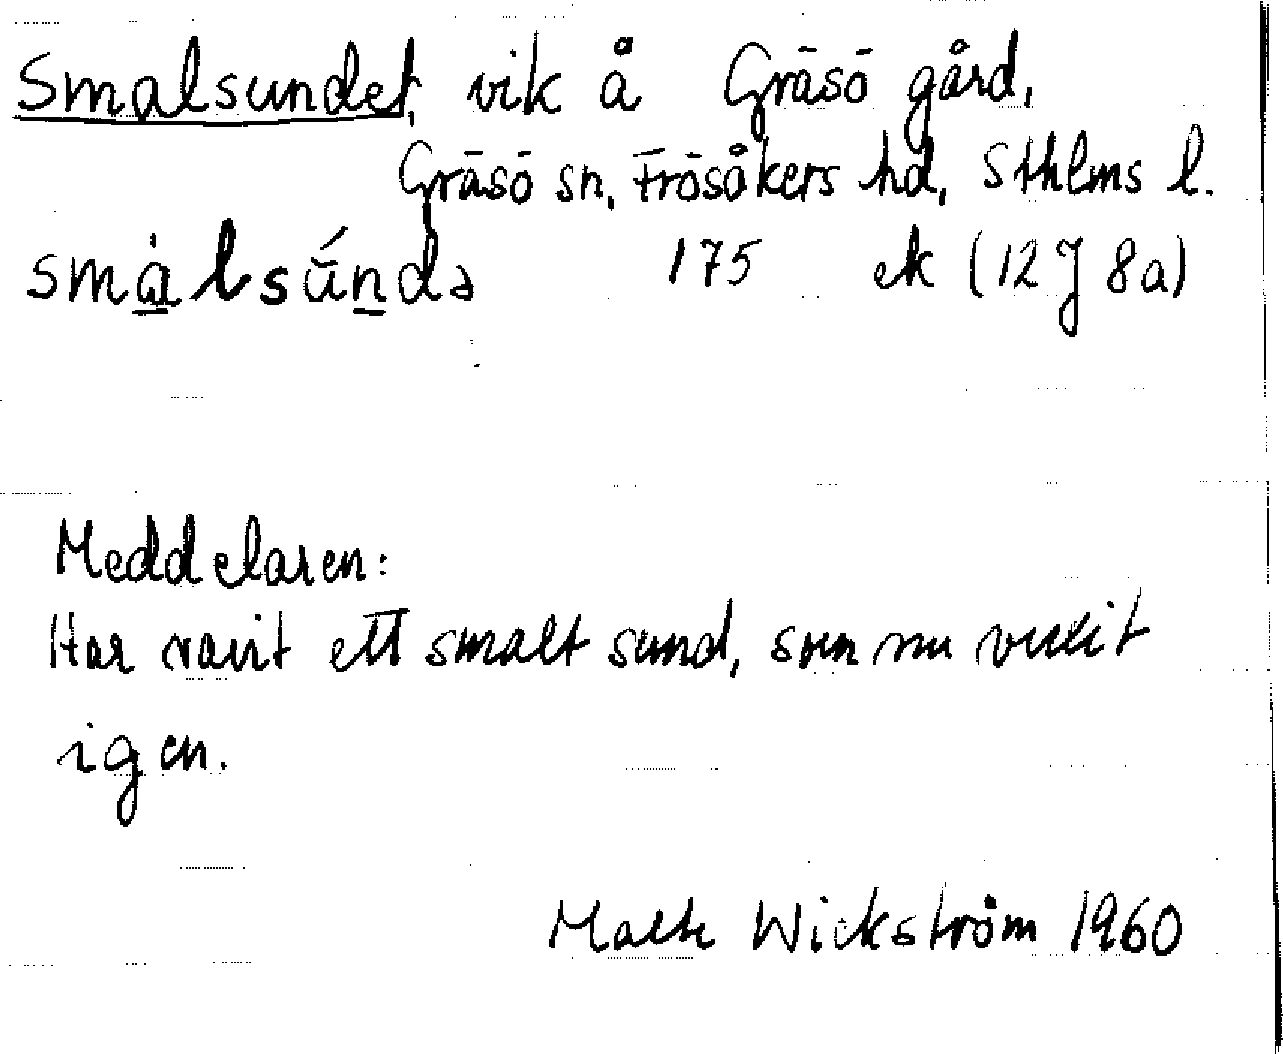 Smalsundet, vik å Gräsö gård,
Gräsö sn, Frösåkers hd, Sthlms l.
smàlsúndə 175 ek (12 J 8a)
Meddelaren:
Har varit ett smalt sund, som nu vuxit
igen.
Malte Wickström 1960